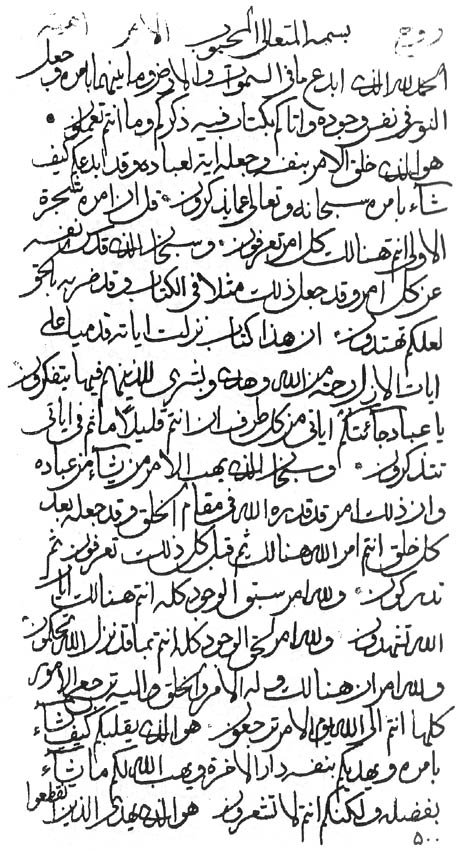 بسمه المتعالی المحبوب
الحمد لله الذی ابدع ما فی السموات والارض وما بینهما بامره وجعل
النور فی نفس وجوده واتاکم بکتاب فیه ذکرکم وما انتم تعملون
هو الذی خلق الامر بنفسه وجعله ایة لعباده وقد ابدعکم کیف
شاء بامره سبحانه وتعالی عما یذکرون قل ان امره شجرة
الاولی انتم هنالک کل امر تعرفون وسبحان الذی قدس نفسه
عن کل امر وقد جعل ذلک مثلا فی الکتاب وقد ضربه بالحق
لعلکم تهتدون ان هذا کتاب نزلت ایاته قدمیا علی
ایات الازل رحمة من الله وهدی وبشری للذینهم فیها یتفکرون
یا عباد جائتکم ایاتی من کل طرف ان انتم قلیلا ما انتم فی ایاتی
تتذکرون وسبحان الذی یهب الامر من یشاء من عباده
وان ذلک امر قد قدره الله فی مقام الخلق وقد جعله بعد
کل خلق انتم امر الله هنالک ثم قبل کل ذلک تعرفون ثم
تدرکون ولله امر سبق الوجود کله انتم هنالک ایات
الله تشهدون ولله امر لحق الوجود کله انتم بما قد نزل الله تحکمون
ولله امران هنالک وله الامر والخلق والیه ترجع الامور
کلها انتم الی الله یوم الامر ترجعون هو الذی یقلبکم کیف یشاء
بامره ویهدیکم بنفسه دار الاخرة ویهب الله لکم ما یشاء
بفضله ولکنکم انتم لا تشعرون هو الذی یهدی الذین انقطعوا
۵۰۰